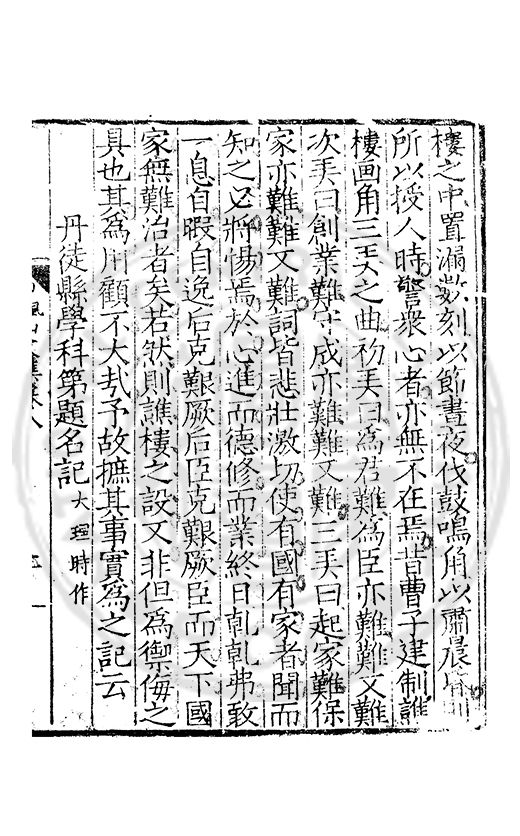 樓之中置漏數刻以節晝夜伐鼓鳴角以肅晨昏
所以授人時警衆心者亦無不在焉昔曹子建制譙
樓画角三弄之曲初弄曰爲君難爲臣亦難難又難
次弄曰創業難守成亦難難又難三弄曰起家難保
家亦難難又難詞皆悲壯激切使有國有家者聞而
知之必將惕焉於心進而德修而業終日乾乾弗敢
一息自暇自逸后克艱厥后臣克艱厥臣而天下國
家無難治者矣若然則譙樓之設又非但爲禦侮之
具也其爲用顧不大哉予故摭其事實爲之記云
丹徒縣學科第題名記 大理時作